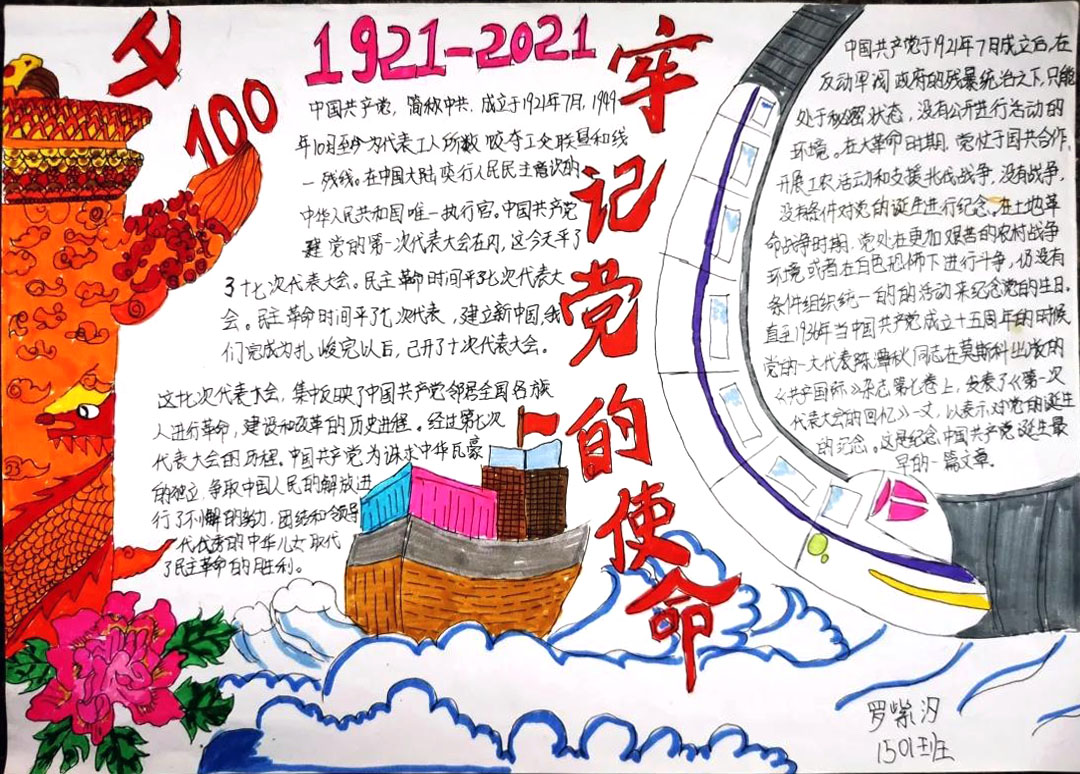 100
1921-2021
牢记党的使命
中国共产党，简称中共，成立于1921年7月，1949
年10月至今为代表工人阶级
联县和线
一残线。在中国大陆 人民民主
中华人民共和国唯一执行官。中国共产党
党的第一次代表大会在内，这今天平了
了十七次代表大会。民主革命时间平了七次代表大
会。民主革命时间平了七次代表，建立新中国，我
们完成为扎 峻完以后，己开了十次代表大会。
这七次代表大会，集中反映了中国共产党邻居全国各族
人进行革命，建设和改革的历史进程。经过第七次
代表大会的历程。中国共产党为 求中华瓦豪
的独立，争取中国人民的解放进
行了不懈的努力，团结和领导
一代优秀的中华儿女取代
了民主革命的胜利。
中国共产党于1921年7月成立后，在
反动军阀政府的残暴统治之下，只能
处于秘密状态，没有公开进行活动的
环境。在大革命时期，党忙于国共合作，
开展工农活动和支援北伐战争，没有战争，
没有条件对党的诞生进行纪念。在土地革
命战争时期，党处在更加艰苦的农村战争
环境或者在白色恐怖下进行斗争，仍没有
条件组织统一的的活动来纪念党的生日。
直至1936年当中国共产党成立十五周年的时候
党的一大代表陈潭秋同志在莫斯科出版的
《共产国际》杂志第七卷上，发表了《第一次
代表大会的回忆》一文，以表示对党的诞生
的纪念。这是纪念中国共产党诞生最
早的一篇文章。
罗紫汐
1501班